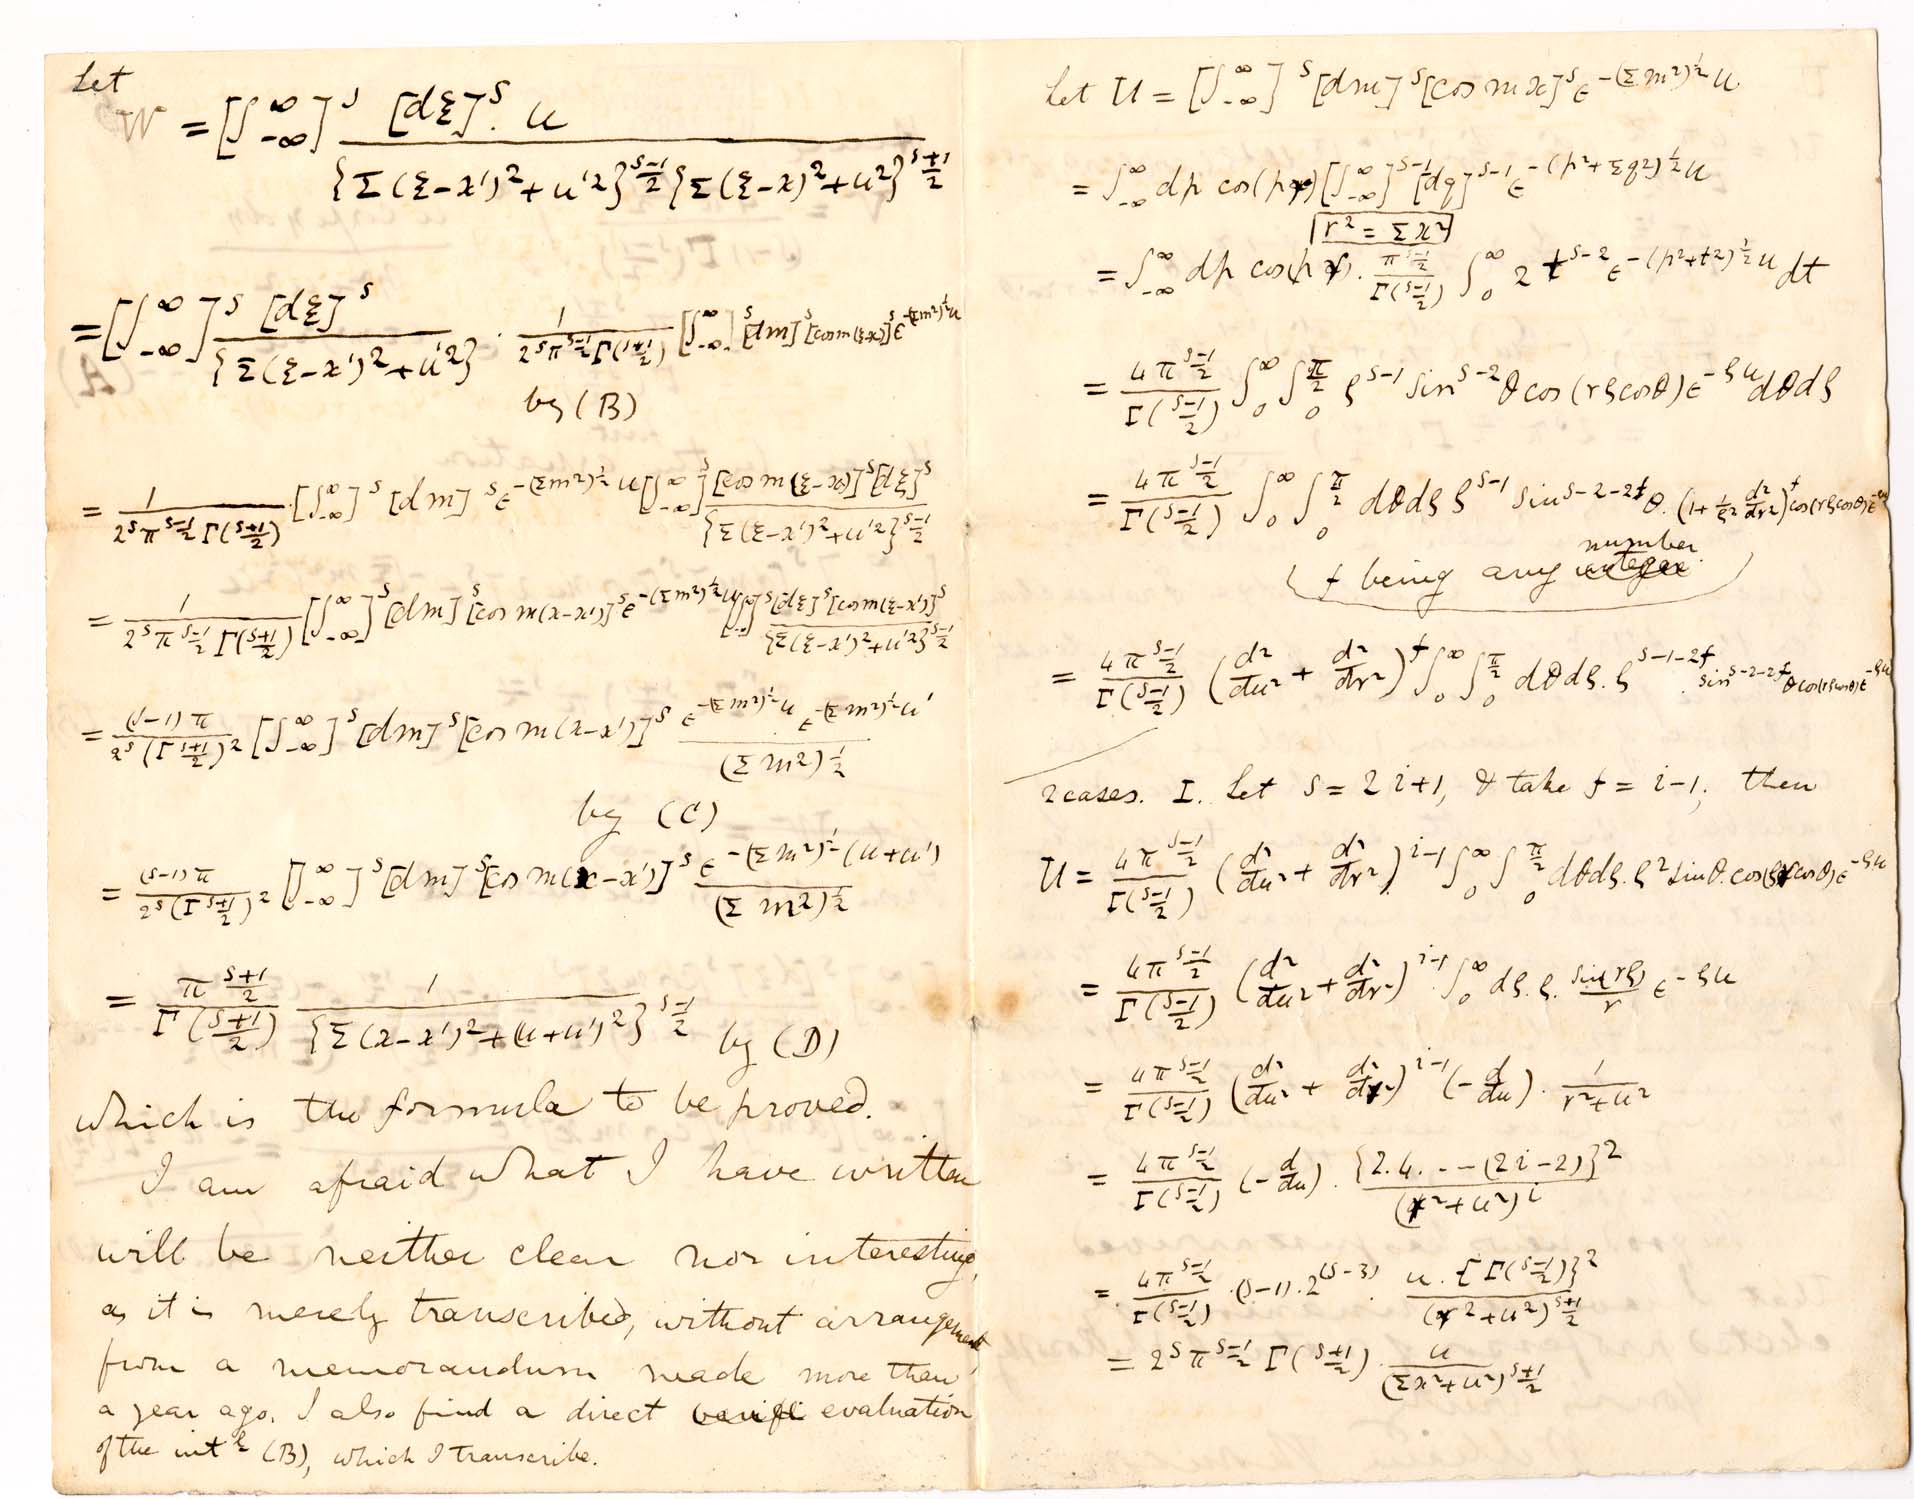 Let
W = [∫_{-∞}^{∞}]^s [dξ]^s . u / {Σ(ξ-x')²+u'²}^{(s-1)/2} {Σ(ξ-x)²+u²}^{(s+1)/2}
= [∫_{-∞}^{∞}]^s [dξ]^s / {Σ(ξ-x')²+u'²} · 1 / 2^s π^{(s-1)/2} Γ(s+1/2) [∫_{-∞}^{∞}]^s [dm]^s [cos m(ξ-x)]^s ε^{-(Σm²)^{1/2}u}
by (B)
= 1 / 2^s π^{(s-1)/2} Γ(s+1/2) · [∫_{-∞}^{∞}]^s [dm]^s ε^{-(Σm²)^{1/2}u} [∫_{-∞}^{∞}]^s [cos m(ξ-x)]^s [dξ]^s / {Σ(ξ-x')²+u'²}^{(s-1)/2}
= 1 / 2^s π^{(s-1)/2} Γ(s+1/2) [∫_{-∞}^{∞}]^s [dm]^s [cos m(x-x')]^s ε^{-(Σm²)^{1/2}u} [∫_{-∞}^{∞}]^s [dξ]^s [cos m(ξ-x')]^s / {Σ(ξ-x')²+u'²}^{(s-1)/2}
= (s-1)π / 2^s (Γ s+1/2)² [∫_{-∞}^{∞}]^s [dm]^s [cos m(x-x')]^s ε^{-(Σm²)^{1/2}u} . ε^{-(Σm²)^{1/2}u'} / (Σm²)^{1/2}
by (C)
= (s-1)π / 2^s (Γ s+1/2)² [∫_{-∞}^{∞}]^s [dm]^s [cos m(x-x')]^s ε^{-(Σm²)^{1/2}(u+u')} / (Σm²)^{1/2}
= π^{(s+1)/2} / Γ(s+1/2) 1 / {Σ(x-x')²+(u+u')²}^{(s-1)/2} by (D)
which is the formula to be proved.
I am afraid what I have written
will be neither clear nor interesting,
as it is merely transcribed, without arrangement,
from a memorandum made more than
a year ago. I also find a direct evaluation
of the int^l (B), which I transcribe.
Let U = [∫_{-∞}^{∞}]^s [dm]^s [cos mx]^s ε^{-(Σm²)^{1/2}u}
= ∫_{-∞}^{∞} dp cos(pr) [∫_{-∞}^{∞}]^{s-1} [dq]^{s-1} ε^{-(p²+Σq²)^{1/2}u}
r² = Σx²
= ∫_{-∞}^{∞} dp cos(pr) . π^{(s-1)/2} / Γ(s-1/2) ∫_0^∞ 2 t^{s-2} ε^{-(p²+t²)^{1/2}u} dt
= 4π^{(s-1)/2} / Γ(s-1/2) ∫_0^∞ ∫_0^{π/2} ζ^{s-1} sin^{s-2}θ cos(rζcosθ) ε^{-ζu} dθdζ
= 4π^{(s-1)/2} / Γ(s-1/2) ∫_0^∞ ∫_0^{π/2} dθdζ ζ^{s-1} sin^{s-2-2f}θ . (1 + 1/ζ² d²/dr²)^f cos(rζcosθ) ε^{-ζu}
(f being any number)
= 4π^{(s-1)/2} / Γ(s-1/2) (d²/du² + d²/dr²)^f ∫_0^∞ ∫_0^{π/2} dθdζ. ζ^{s-1-2f} . sin^{s-2-2f}θ cos(rζcosθ) ε^{-ζu}
2 cases. I. Let s = 2i+1, & take f = i-1; then
U = 4π^{(s-1)/2} / Γ(s-1/2) (d²/du² + d²/dr²)^{i-1} ∫_0^∞ ∫_0^{π/2} dθdζ. ζ² sinθ. cos(ζrcosθ) ε^{-ζu}
= 4π^{(s-1)/2} / Γ(s-1/2) (d²/du² + d²/dr²)^{i-1} . ∫_0^∞ dζ. ζ. sin(rζ)/r ε^{-ζu}
= 4π^{(s-1)/2} / Γ(s-1/2) (d²/du² + d²/dr²)^{i-1} (-d/du) . 1 / r²+u²
= 4π^{(s-1)/2} / Γ(s-1/2) (-d/du) . {2.4. --- (2i-2)}² / (r²+u²)^i
= 4π^{(s-1)/2} / Γ(s-1/2) . (s-1) . 2^{(s-3)} . u . {Γ(s-1/2)}² / (r²+u²)^{(s+1)/2}
= 2^s π^{(s-1)/2} Γ(s+1/2) . u / (Σx²+u²)^{(s+1)/2}